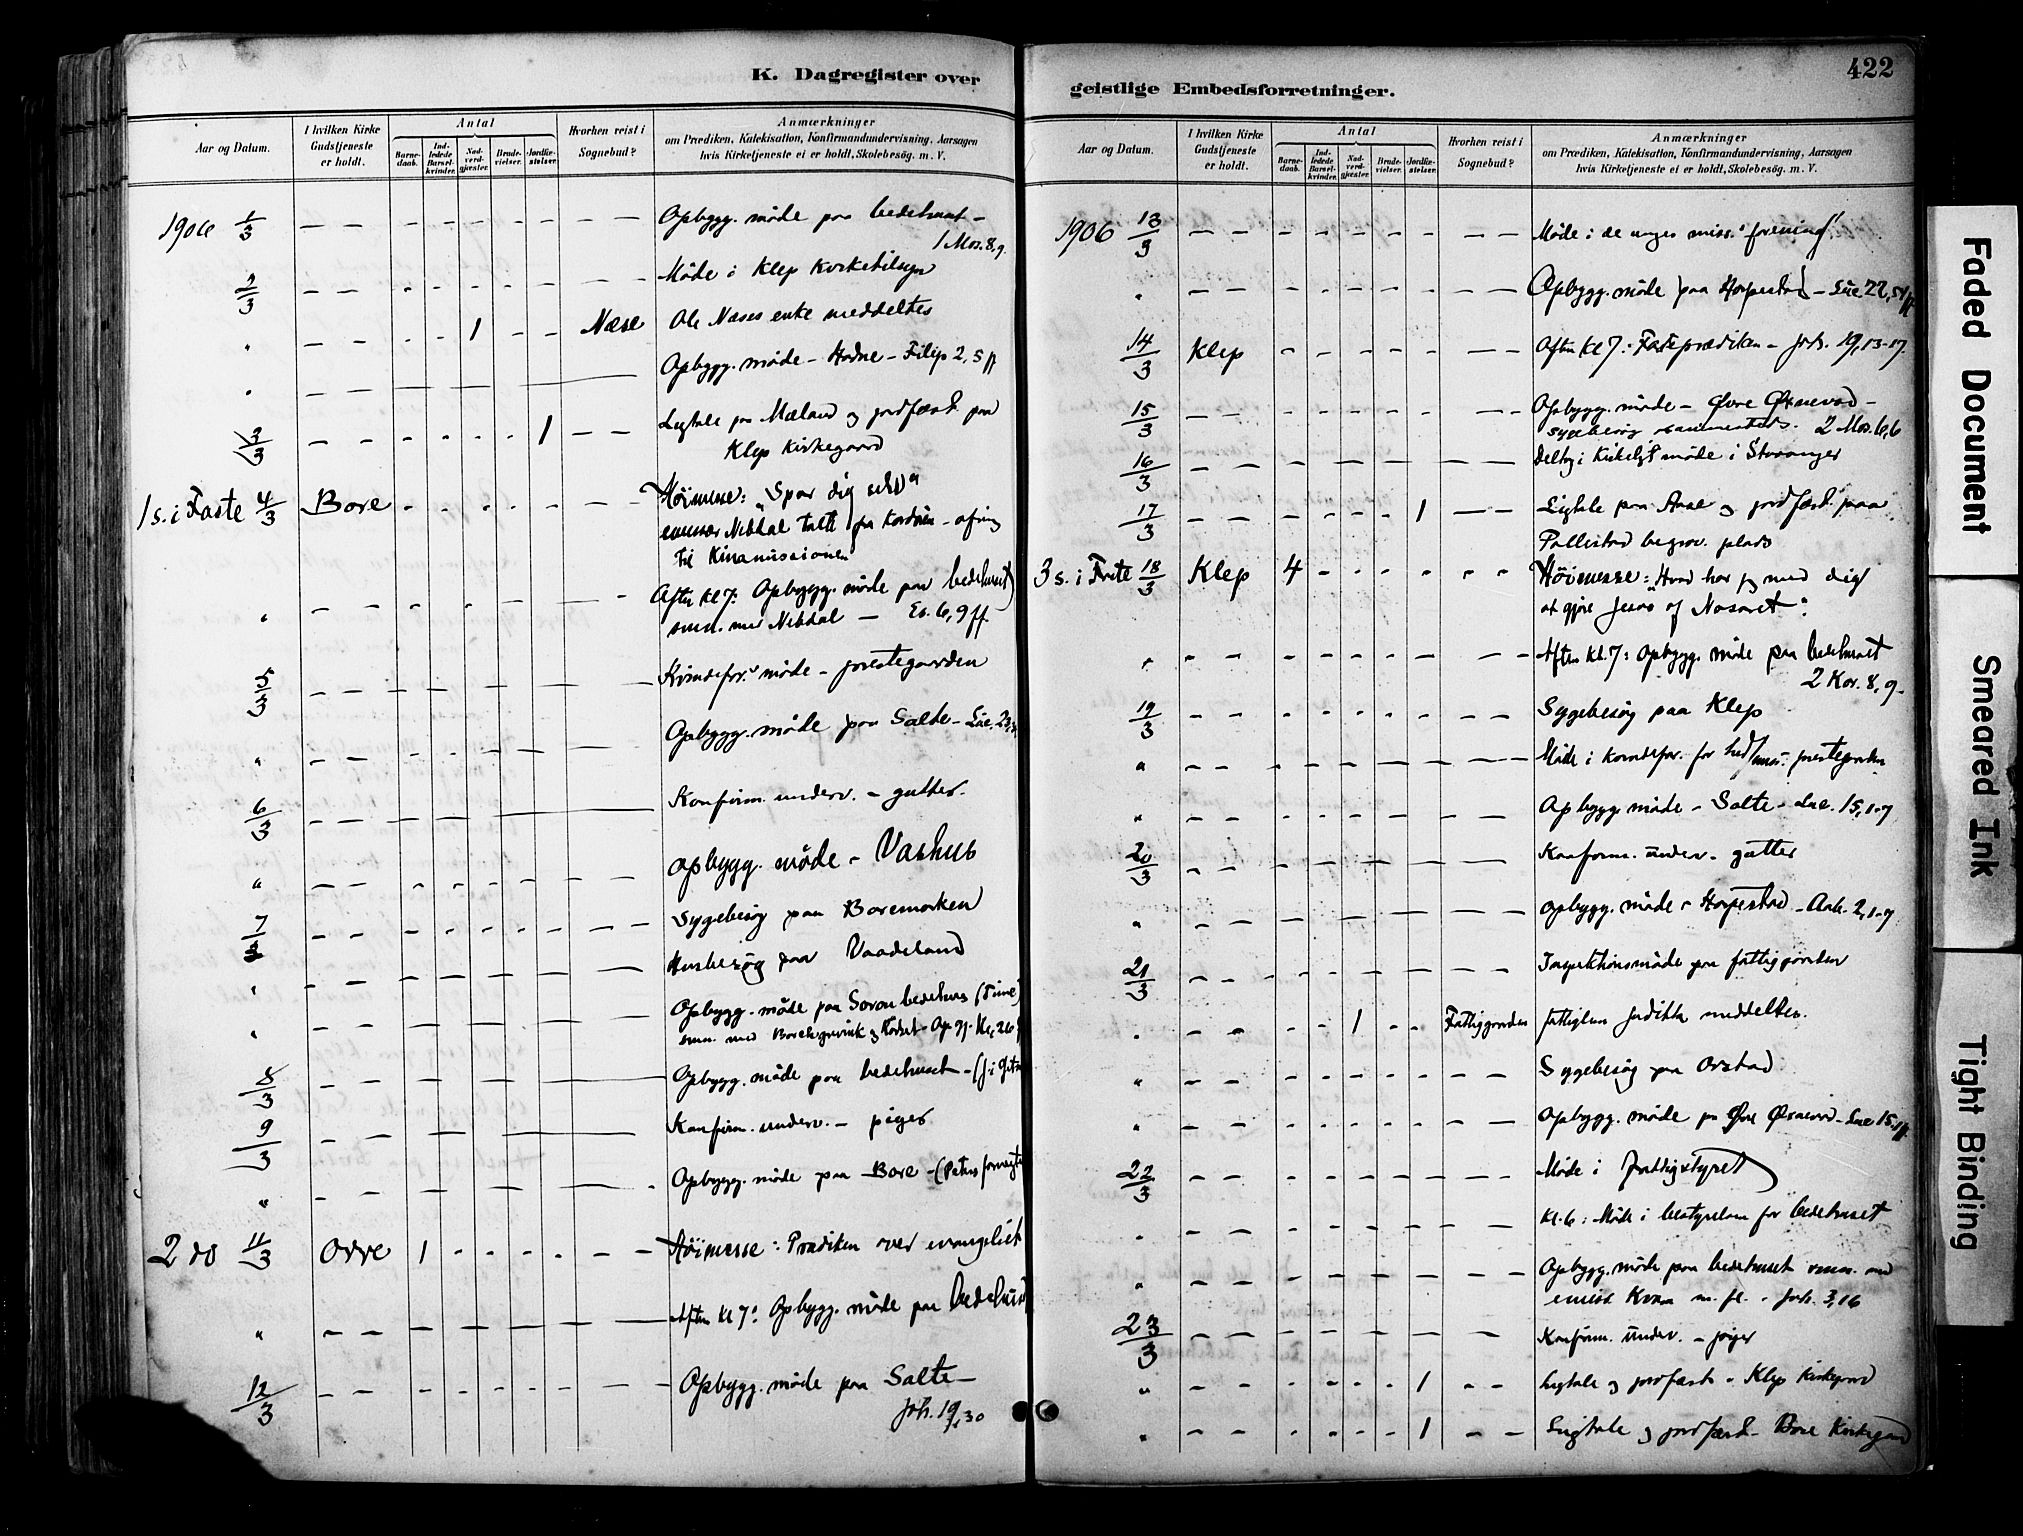 K. Dagregister over
Aar og Datum.
I hvilken Kirke Gudstjeneste er holdt.
Antal
Barnedaab.
Indledede Barselkvinder.
Nadverdgjæster.
Brudevielser.
Jordfæstelser.
Hvorhen reist i Sognebud?
Anmærkninger
om Prædiken, Katekisation, Konfirmandundervisning, Aarsagen
hvis Kirketjeneste ei er holdt, Skolebesøg. m. V.
1906 1/3 Opbygg. møde paa bedehuset –
1 Mos. 8, 9
2/3 Møde i Klep Kirketilsyn
" 1 Næse Ole Næses enke meddeltes
" Opbygg. møde – Hodne – Filip 2, 5 ff
3/3 1 Ligtale paa Mæland og jordfæst. paa
Klep Kirkegaard
1 s. i Faste 4/3 Bore Høimesse: "Spar dig selv"
Nibdal talte fra Kordøren – ofring
til Kinamissionen
" Aften Kl 7: Opbygg. møde paa bedehuset
sm. med Nibdal – Es. 6, 9 ff.
5/3 Kvindefor. møde – prestegaarden
" Opbygg. møde paa Salte – Luc. 23,
6/3 Konfirm. underv. – gutter.
" Opbygg. møde – Vashus
7/3 Sygebesøg paa Boremarken
" Husbesøg paa Vaadeland
" Opbygg. møde paa bedehus (Time)
8/3 Opbygg. møde paa bedehuset – (J. i Getse
9/3 Konfirm. underv. – piger
" Opbygg. møde paa Bore – (Peters fornegte
2 do 11/3 Orre 1 Høimesse: Prædiken over evangeliet
" Aften Kl 7: Opbygg. møde paa bedehuset
12/3 Opbygg. møde paa Salte –
Joh. 19, 30
geistlige Embedsforretninger.
422
Aar og Datum.
I hvilken Kirke Gudstjeneste er holdt.
Antal
Barnedaab.
Indledede Barselkvinder.
Nadverdgjæster.
Brudevielser.
Jordfæstelser.
Hvorhen reist i Sognebud?
Anmærkninger
om Prædiken, Katekisation, Konfirmandundervisning, Aarsagen
hvis Kirketjeneste ei er holdt, Skolebesøg. m. V.
1906 13/3 Møde i de unges miss. forening
" Opbygg. møde paa Horpestad – Luc. 22, 54 ff
14/3 Klep Aften Kl 7: Fasteprædiken – Joh. 19, 13-17.
15/3 Opbygg. møde – Øvre Øxnevad –
sygebesøg sammesteds. 2 Mos. 6, 6
16/3 Deltog i Kirkeligt møde i Stavanger
17/3 1 Ligtale paa Aase og jordfæst. paa
begrav. plads
3 s. i Faste 18/3 Klep 4 Høimesse: Hvad har jeg med dig
at gjøre Jesus af Nasaret".
" Aften Kl. 7: Opbygg. møde paa bedehuset
2 Kor. 8, 9.
19/3 Sygebesøg paa Klep
" Møde i Kvindefor. for hedmiss. prestegaarden
" Opbygg. møde – Salte – Luc. 15, 1-7
20/3 Konfirm. underv. gutter
" Opbygg. møde – Horpestad – Aab. 2, 1-7
21/3 Inspektionsmøde paa fattiggaarden
" 1 Fattiggaarden fattiglem Juditha meddeltes.
" Sygebesøg paa Orstad
" Opbygg. møde paa Øvre Øxnevad – Luc 15, 1 ff.
22/3 Møde i fattigstyret
" Kl. 6: Møde i bestyrelsen for bedehuset
" Opbygg. møde paa bedehuset sm. med
emiss. Kvam m. fl. – Joh. 3, 16
23/3 Konfirm. underv. – piger
" 1 Ligtale og jordfæst. – Klep Kirkegaard
" 1 Ligtale og jordfæst. – Bore Kirkegaard
Faded Document
Smeared Ink
Tight Binding